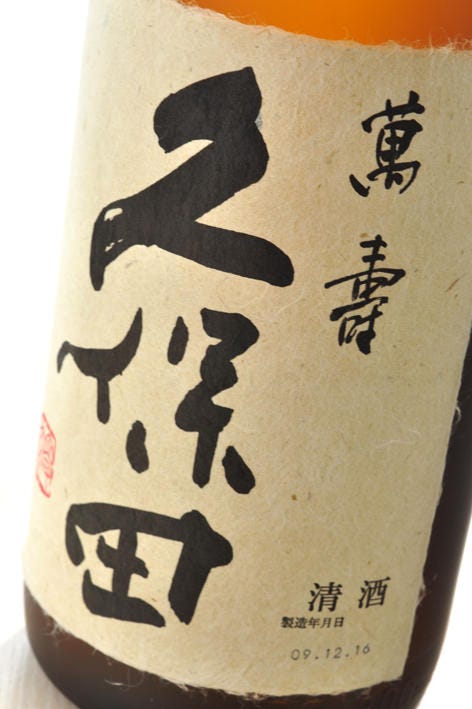 萬壽
久保田
清酒
製造年月日
09.12.16